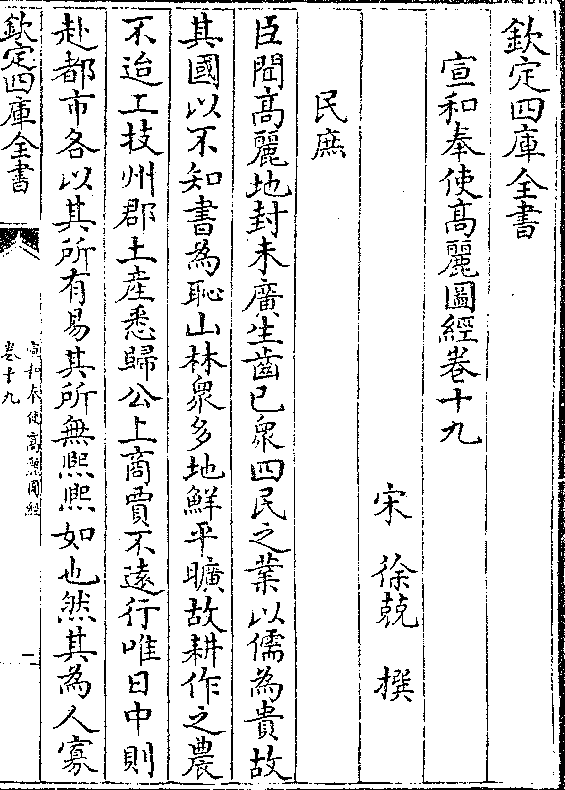 欽定四庫全書
宣和奉使髙麗圖經巻十九
宋 徐兢 撰
民庶
臣聞髙麗地封未廣生齒已衆四民之業以儒為貴故
其國以不知書為恥山林衆多地鮮平曠故耕作之農
不迨工技州郡土産悉歸公上商賈不逺行唯日中則
赴都市各以其所有易其所無熈熈如也然其為人寡
欽定四庫全書
宣和奉使髙麗圖經
巻十九
一